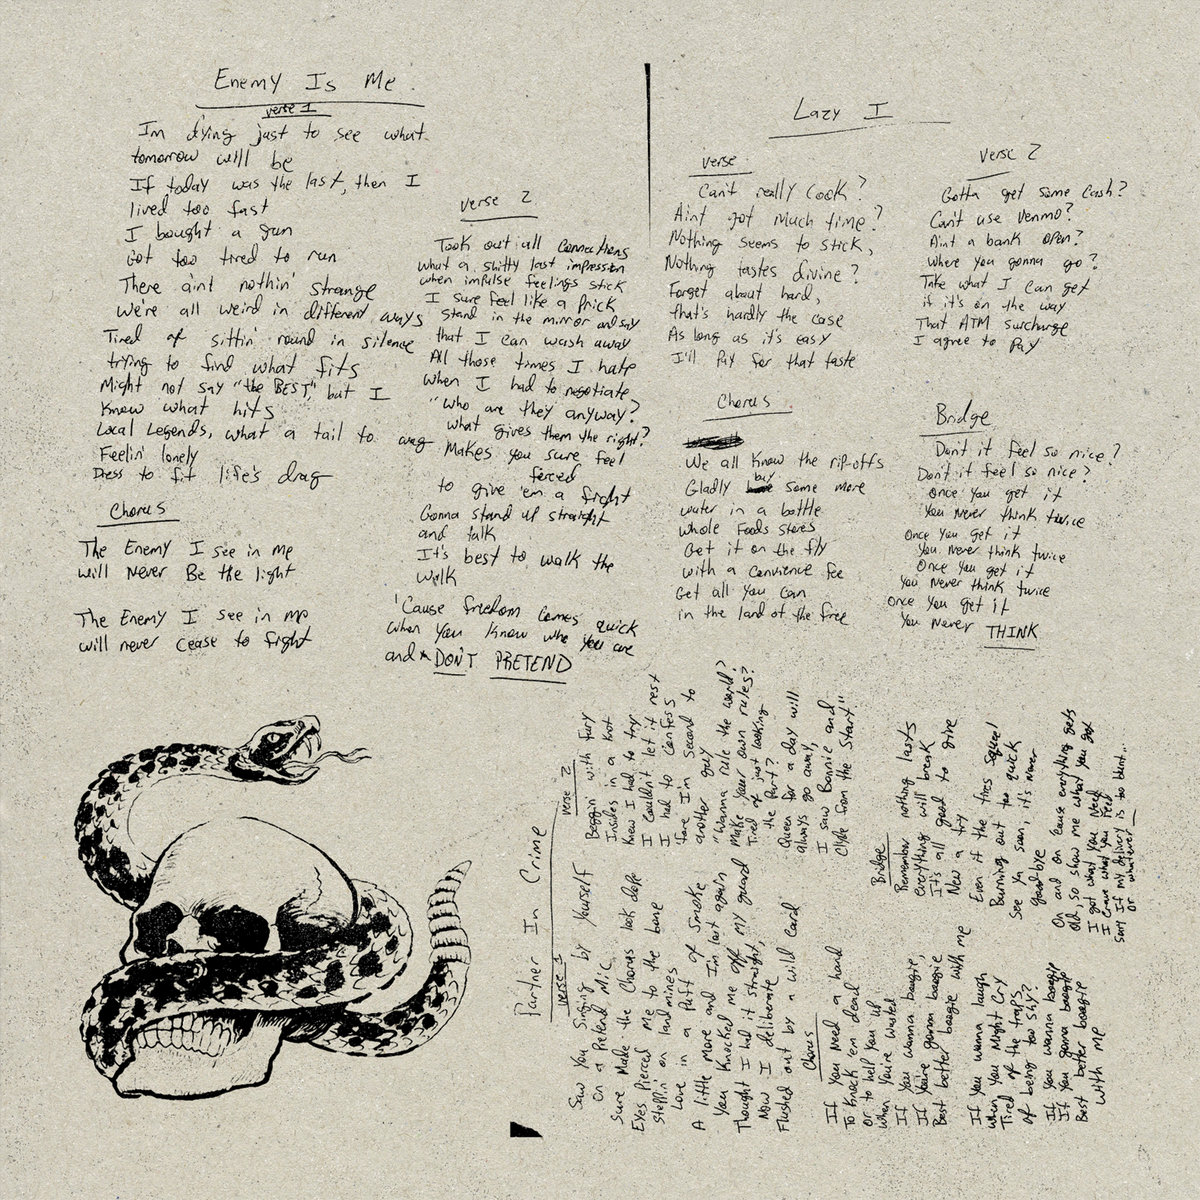 Enemy Is Me
verse 1
Im dying just to see what
tomorrow will be
If today was the last, then I
lived too fast
I bought a gun
Got too tired to run
There aint nothin' strange
We're all weird in different ways
Tired of sittin' round in silence
trying to find what fits
Might not say "the BEST", but I
know what hits
Local Legends, what a tail to wag
Feelin' lonely
Dress to fit life's drag
Chorus
The Enemy I see in me
will Never Be the light
The Enemy I see in me
will never cease to fight
verse 2
Took out all connections
what a shitty last impression
when impulse feelings stick
I sure feel like a prick
stand in the mirror and say
that I can wash away
All those times I hate
when I had to negotiate
"Who are they anyway?
what gives them the right?
Makes you sure feel
forced
to give 'em a fight
Gonna stand up straight
and talk
It's best to walk the
walk
'Cause freedom comes quick
when you know who you are
and DON'T PRETEND
Lazy I
verse
Can't really Cook?
Aint got much time?
Nothing seems to stick,
Nothing tastes divine?
Forget about hard,
that's hardly the case
As long as it's easy
I'll pay for that taste
Chorus
We all know the rip-offs
Gladly buy some more
water in a bottle
whole Foods stores
Get it on the fly
with a convience fee
Get all you can
in the land of the free
verse 2
Gotta get some cash?
Can't use venmo?
Aint a bank open?
Where you gonna go?
Take what I can get
if it's on the way
That ATM surcharge
I agree to pay
Bridge
Don't it feel so nice?
Don't it feel so nice?
Once you get it
You never think twice
Once you get it
You never think twice
Once you get it
You never think twice
Once you get it
You never THINK
Partner In Crime
verse 1
Saw You Singing by Yourself
on a Pretend Mic
Sure Make the Chorus look dope
Eyes Pierced Me to the bone
Steppin' on landmines
Love in a Puff of Smoke
A little more and I'm lost again
You Knocked me off my guard
Thought I had it straight,
Now I deliberate
Flushed out by a wild card
Chorus
If You Need a hand
To Knock 'em dead
or to help You up
When you're wasted
If You wanna boogie,
If You're gonna boogie,
Best better boogie with me
If You wanna laugh
when You Might Cry
Tired of the traps
of being too shy?
If you wanna boogie
If You gonna boogie
Best better boogie
with me
verse 2
Beggin with fury
Insides in a knot
Knew I had to try
I couldn't let it rest
I had to confess
fore I'm second to
another guy
"Wanna rule the world?
Make your own rules?
Tired of just looking
the Part?
Queen for a day will
always go away,
I saw Bonnie and
Clyde from the Start"
Bridge
Remember nothing lasts
everything will break
It's all good to give
New a try
Even if the tires squeal
Burning out too quick
See ya soon, it's never
goodbye
On and on cause everything gets
old, so show me what you got
I got what You Need
I crave what you feed
Sorry if my delivery is too blunt...
or whatever